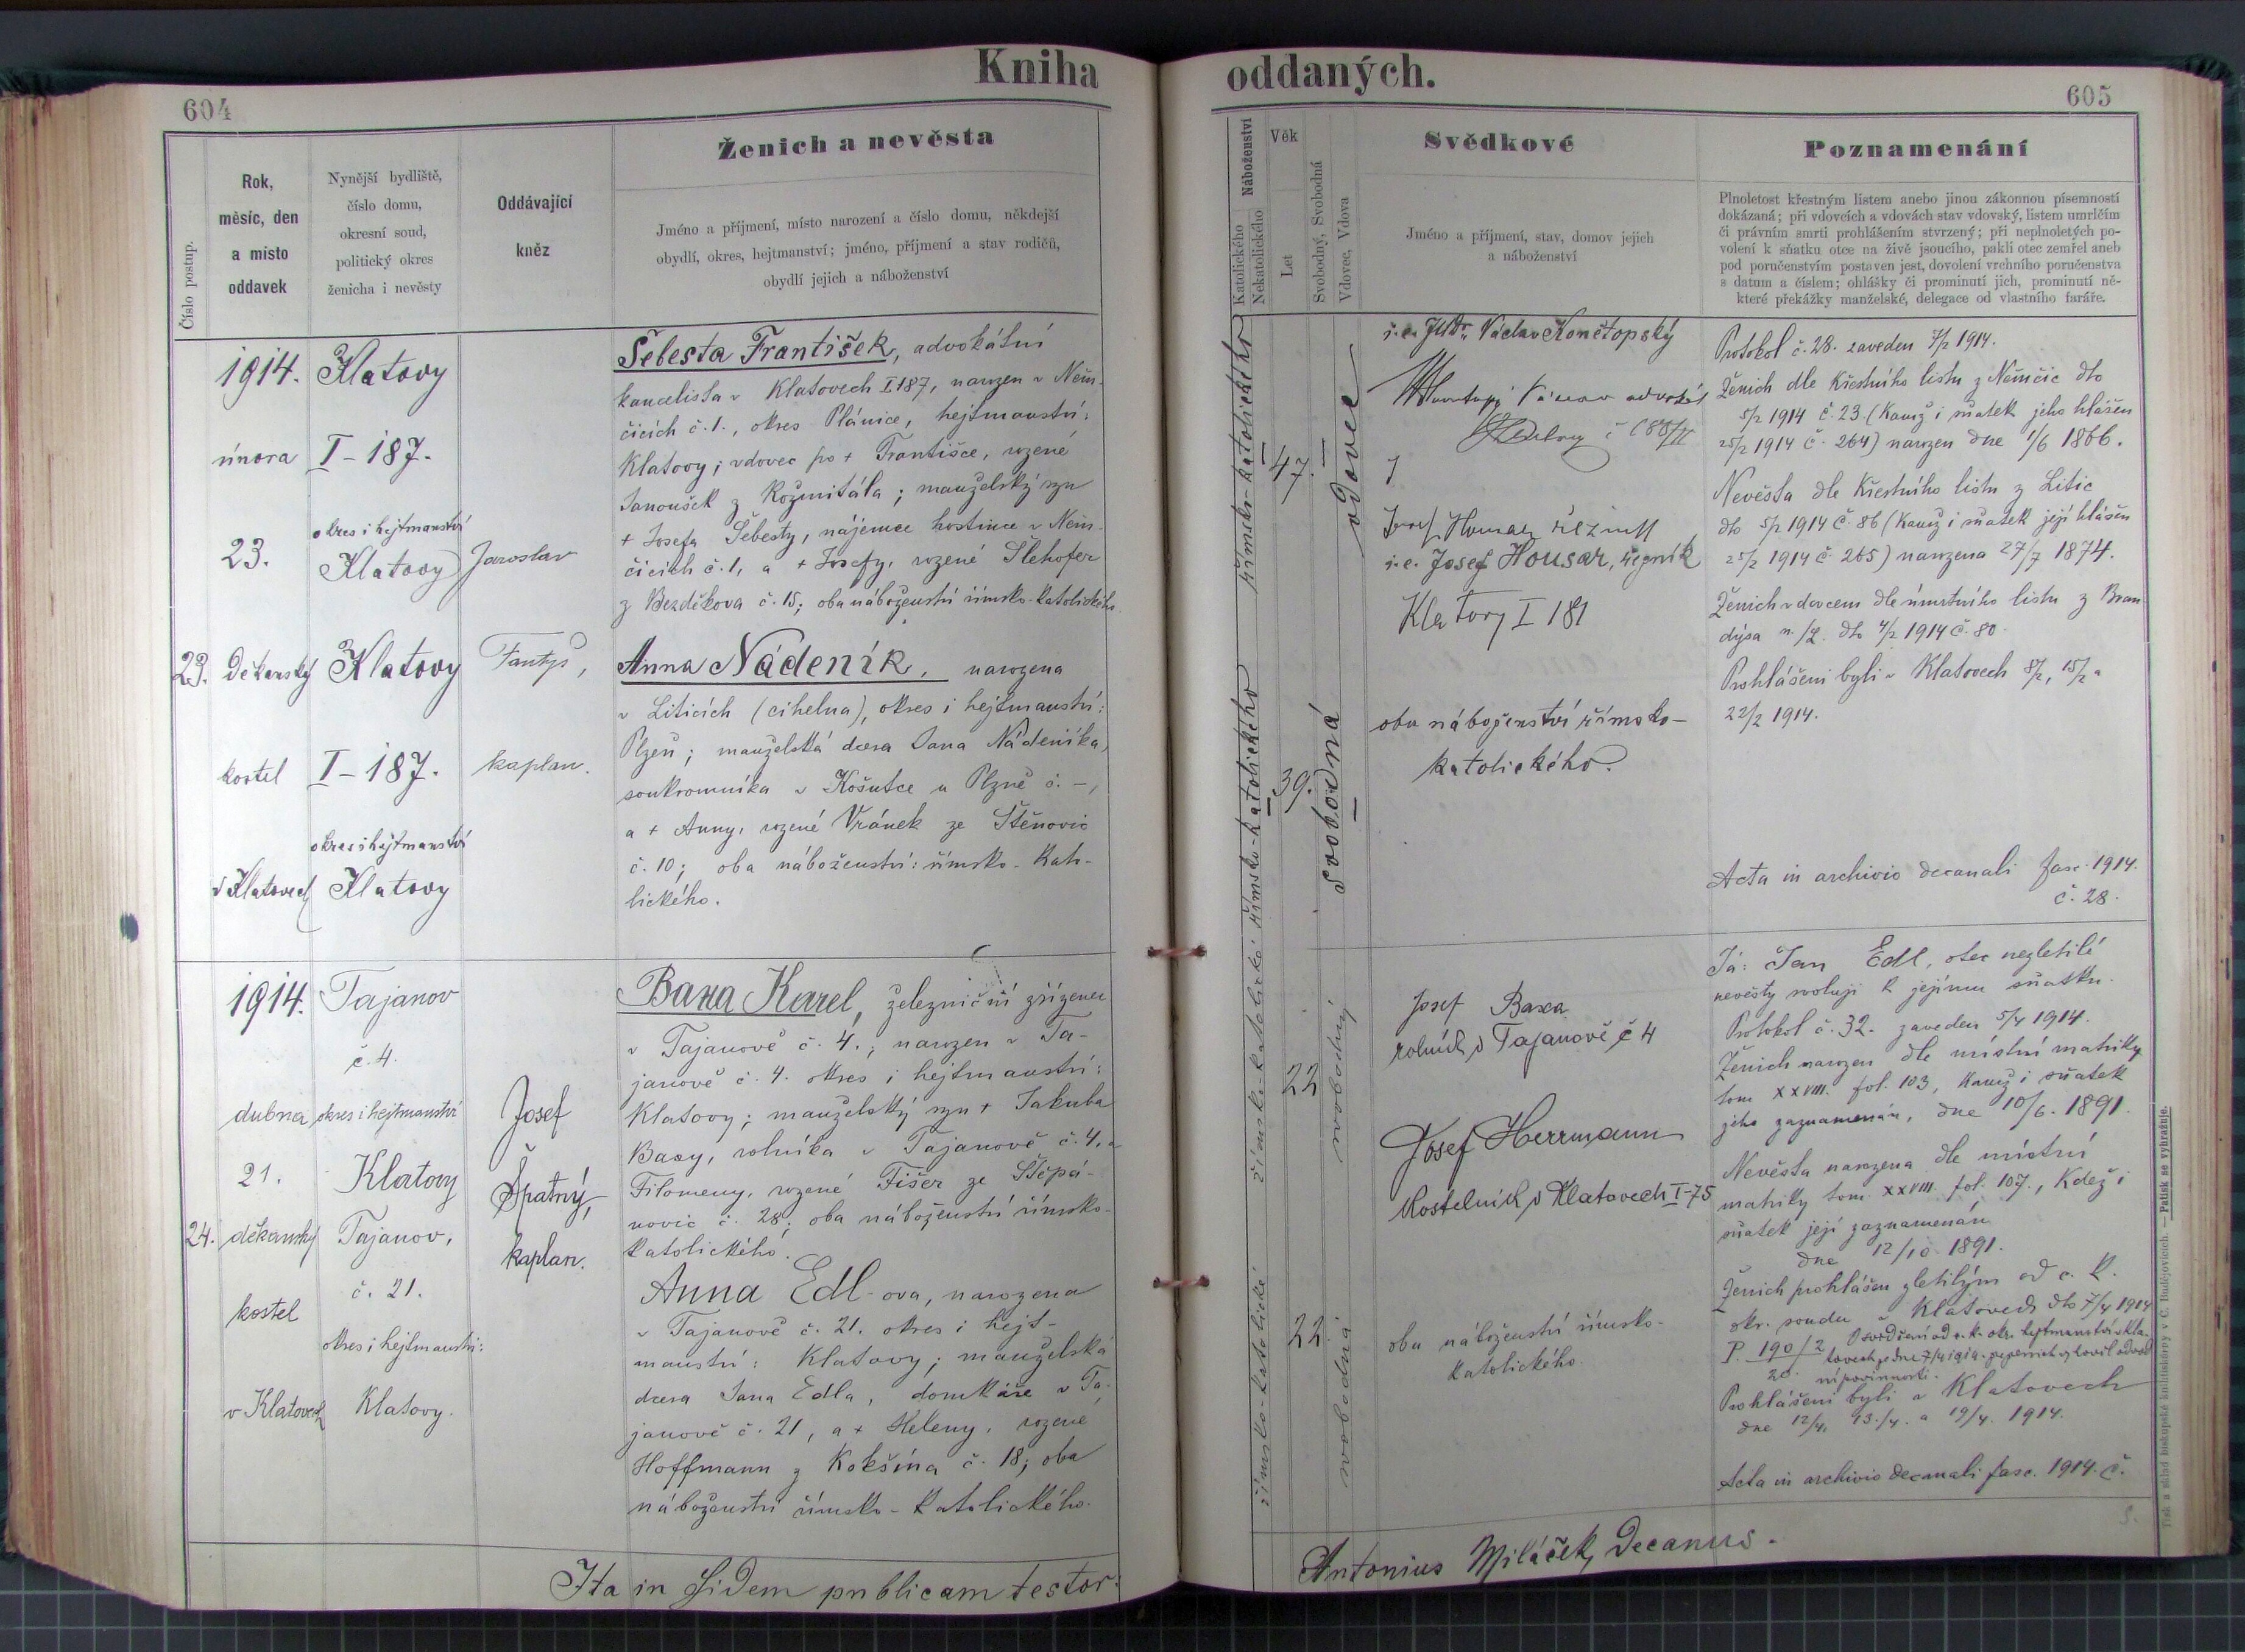 Kniha oddaných.
604
605
Číslo postup.
Rok,
měsíc, den
a místo
oddavek
Nynější bydliště,
číslo domu,
okresní soud,
politický okres
ženicha i nevěsty
Oddávající
kněz
Ženich a nevěsta
Jméno a příjmení, místo narození a číslo domu, někdejší
obydlí, okres, hejtmanství; jméno, příjmení a stav rodičů,
obydlí jejich a náboženství
Náboženství
Katolického
Nekatolického
Věk
Let
Svobodný, Svobodná
Vdovec, Vdova
Svědkové
Jméno a příjmení, stav, domov jejich
a náboženství
Poznamenání
Plnoletost křestným listem anebo jinou zákonnou písemností
dokázaná; při vdovcích a vdovách stav vdovský, listem umrlčím
či právním smrti prohlášením stvrzený; při neplnoletých po-
volení k sňatku otce na živě jsoucího, pakli otec zemřel aneb
pod poručenstvím postaven jest, dovolení vrchního poručenstva
s datum a číslem; ohlášky či prominutí jich, prominutí ně-
které překážky manželské, delegace od vlastního faráře.
23.
1914.
února
23.
děkanský
kostel
v Klatovech
Klatovy
I-187.
okres i hejtmanství
Klatovy
Klatovy
I-187.
okres i hejtmanství
Klatovy
Jaroslav
Fantyš,
kaplan.
Šebesta František, advokátní
kancelista v Klatovech I 187, narozen v Něm-
čicích č. 1., okres Plánice, hejtmanství:
Klatovy; vdovec po + Františce, rozené
Janoušek z Rožmitála; manželský syn
+ Josefa Šebesty, nájemce hostince v Něm-
čicích č. 1, a + Josefy, rozené Šlehofer
z Bezděkova č. 15; oba náboženství římsko-katolického.
Anna Nádeník, narozena
v Liticích (cihelna), okres i hejtmanství:
Plzeň; manželská dcera Jana Nádeníka,
soukromníka v Košutce u Plzně č. –,
a + Anny, rozené Vránek ze Štěnovic
č. 10; oba náboženství: římsko-kato-
lického.
římsko-katolického
47.
vdovec
římsko-katolického
39.
svobodná
i.e. JUDr. Václav Končtopský
Josef Housar řezník
i.e. Josef Housar, řezník
Klatovy I 181
oba náboženství římsko-
katolického.
Protokol č. 28. zaveden 7/2 1914.
Ženich dle křestního listu z Němčic dto
5/2 1914 č. 23 (kamž i sňatek jeho hlášen
25/2 1914 č. 264) narozen dne 1/6 1866.
Nevěsta dle křestního listu z Litic
dto 5/2 1914 č. 86 (kamž i sňatek její hlášen
25/2 1914 č. 265) narozena 27/7 1874.
Ženich vdovcem dle úmrtního listu z Bran-
dýsa n./L. dto 4/2 1914 č. 80.
Prohlášeni byli v Klatovech 8/2, 15/2 a
22/2 1914.
Acta in archivio decanali fasc. 1914.
č. 28.
24.
1914.
dubna
21.
děkanský
kostel
v Klatovech
Tajanov
č. 4.
okres i hejtmanství
Klatovy
Tajanov,
č. 21.
okres i hejtmanství:
Klatovy.
Josef
Špatný,
kaplan.
Baxa Karel, železniční zřízenec
v Tajanově č. 4.; narozen v Ta-
janově č. 4. okres i hejtmanství:
Klatovy; manželský syn + Jakuba
Baxy, rolníka v Tajanově č. 4, a
Filomeny, rozené Fišer ze Štěpá-
novic č. 28; oba náboženství římsko-
katolického.
Anna Edl-ova, narozena
v Tajanově č. 21. okres i hejt-
manství: Klatovy; manželská
dcera Jana Edla, domkáře v Ta-
janově č. 21, a + Heleny, rozené
Hoffmann z Kokšína č. 18; oba
náboženství římsko-katolického.
římsko-katolické
22
svobodný
římsko-katolické
22
svobodná
Josef Baxa
rolník v Tajanově č 4
Josef Herrmann
kostelník v Klatovech I-75
oba náboženství římsko-
katolického.
Já: Jan Edl, otec nezletilé
nevěsty svoluji k jejímu sňatku.
Protokol č. 32. zaveden 5/4 1914.
Ženich narozen dle místní matriky
tom XXVIII. fol. 103, kamž i sňatek
jeho zaznamenán, dne 10/6. 1891.
Nevěsta narozena dle místní
matriky tom XXVIII. fol. 107., kdež i
sňatek její zaznamenán
dne 12/10 1891.
Ženich prohlášen zletilým od c. k.
okr. soudu v Klatovech dto 7/4 1914
P. 190/2
20.
Osvědčení od c. k. okr. hejtmanství v Kla-
tovech ze dne 7/4 1914. že ženich vyhověl odvod-
ní povinnosti.
Prohlášeni byli v Klatovech
dne 12/4, 13./4. a 19/4. 1914.
Acta in archivio decanali fasc. 1914. č.
Ita in fidem publicam testor:
Antonius Miláček, Decanus.
Tisk a sklad biskupské knihtiskárny v Č. Budějovicích. — Patisk se vyhražuje.